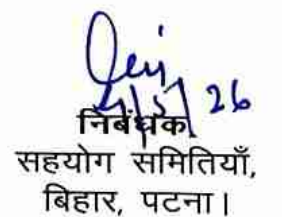 4/5/26
निबंधक
सहयोग समितियाँ,
बिहार, पटना।